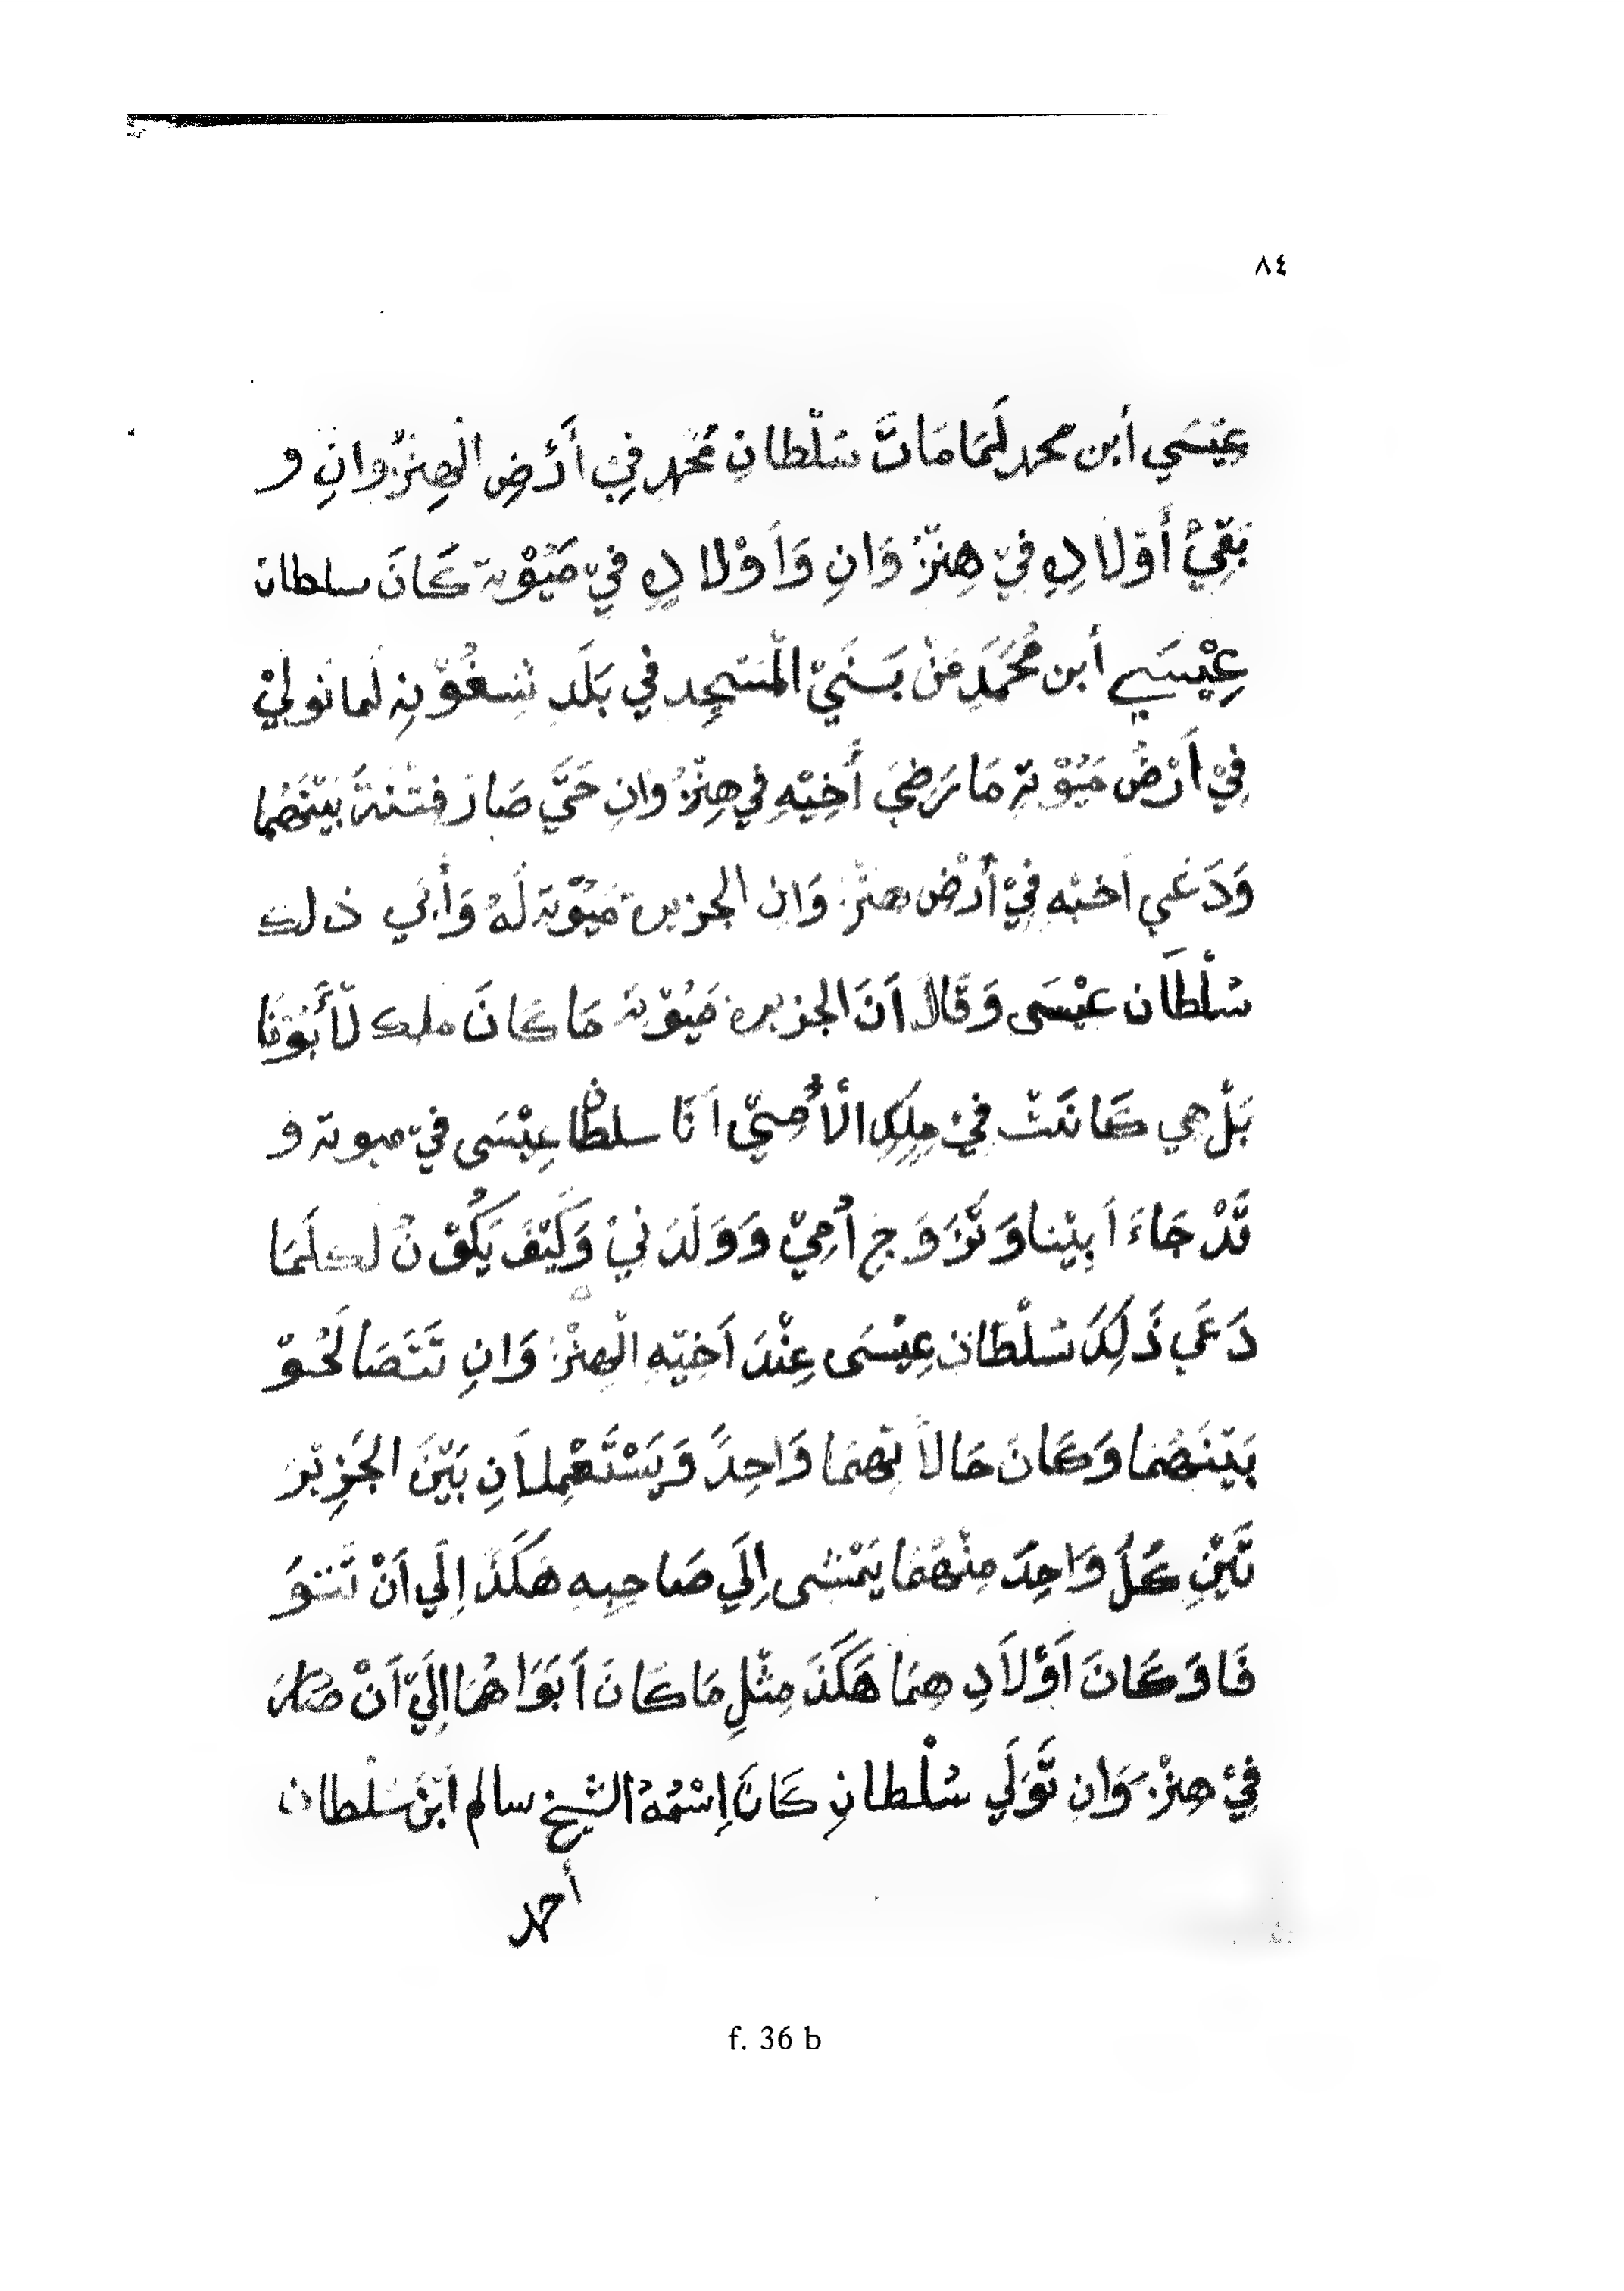 ٨٤
عِيْسَي أبن محمد لَمَا مَاتَ سُلْطانِ مُحَمد فِيْ أَرْضِ الْهِنْزُوانِ و
بَقِيْ أَوْلَادِهِ فِيْ هِنْزُ وَانِ وَأَوْلادِهِ فِيْ مَيُوْتَة كَانَ سلطان
عِيْسَي أبن مُحَمَّدَ مَنْ بَنَيْ الْمَسْجِد فِي بَلَدِ تْسِغُوْنِه لما تولِيْ
فِيْ اَرْضْ مَيُوْتَةِ مَا رَضِيَ أَخِيْهِ فِي هِنْزُوَانِ حَتَّي صَارَ فِتْنَةً بَيْنَهُمَا
وَدَعَي اَخيْه فِيْ أَرْضِ هنْزُ وَانِ الجزيرة مَيُوْتَة لَهُ وَأَبَي ذلك
سُلْطَان عيْسَى وَقَالَ اَنَ الجزيرة مَيُوْتَة مَا كَانَ ملك لأَبُوْنَا
بَلْ هي كَانَتْ فِيْ مِلْكِ الْأُمِيّ اَنَا سلطان عِيْسَى فِيْ ميوتة و
قَدْ جَاءَ اَبِيْنا وَتَزَوَج اُمِيْ وَوَلَدَنِيْ وَكَيْفَ يَكُوْنُ لَكَ لَمَا
دَعَي ذَلِكَ سُلْطان عِيْسَى عِنْدَ اَخِيْهِ الْهِنْزُ وَانِ تَتَصَالَحُوْ
بَيْنَهُمَا وَكَانَ حَالاَتِهِمَا وَاحِدً وَيَسْتَعْمِلَانِ بَيْنَ الجَزِيْرَ
تَيْنِ كُلُ وَاحِدَ مِنْهُمَا يَمْشى اِلَي صَاحِبِهِ هَكَذَ اِلَي اَنْ تَتَوَ
فَا وَكَانَ اَوْلاَدِ هِمَا هَكَذَ مِثْلِ مَا كَانَ اَبَوَاهُمَا اِلَيّ اَنْ صَارَ
فِيْ هِنْزُوَانِ تَوَلَي سُلْطانِ كَانَ اِسْمُهُ الشَّيخ سالم اَبْنَ سُلْطان
أحمد
f. 36 b